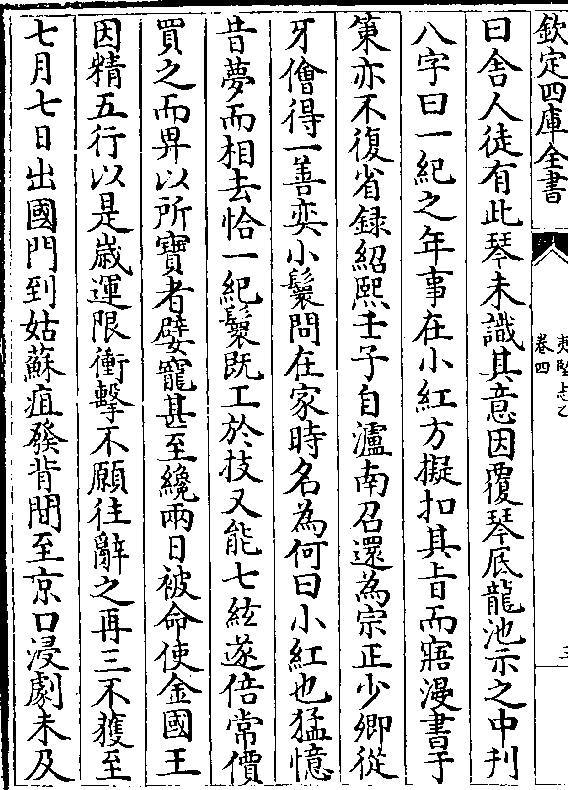 欽定四庫全書
夷堅志乙
卷四
三
曰舎人徒有此琴未識其意因覆琴底龍池示之中刊
八字曰一紀之年事在小紅方擬扣其㫖而寤漫書于
䇿亦不復省録紹熙壬子自瀘南召還為宗正少卿從
牙儈得一善奕小鬟問在家時名為何曰小紅也猛憶
昔夢而相去恰一紀鬟既工於技又能七絃遂倍常價
買之而畀以所寶者嬖寵甚至纔兩日被命使金國王
因精五行以是嵗運限衝擊不願往辭之再三不獲至
七月七日出國門到姑蘇疽發背間至京口浸劇未及